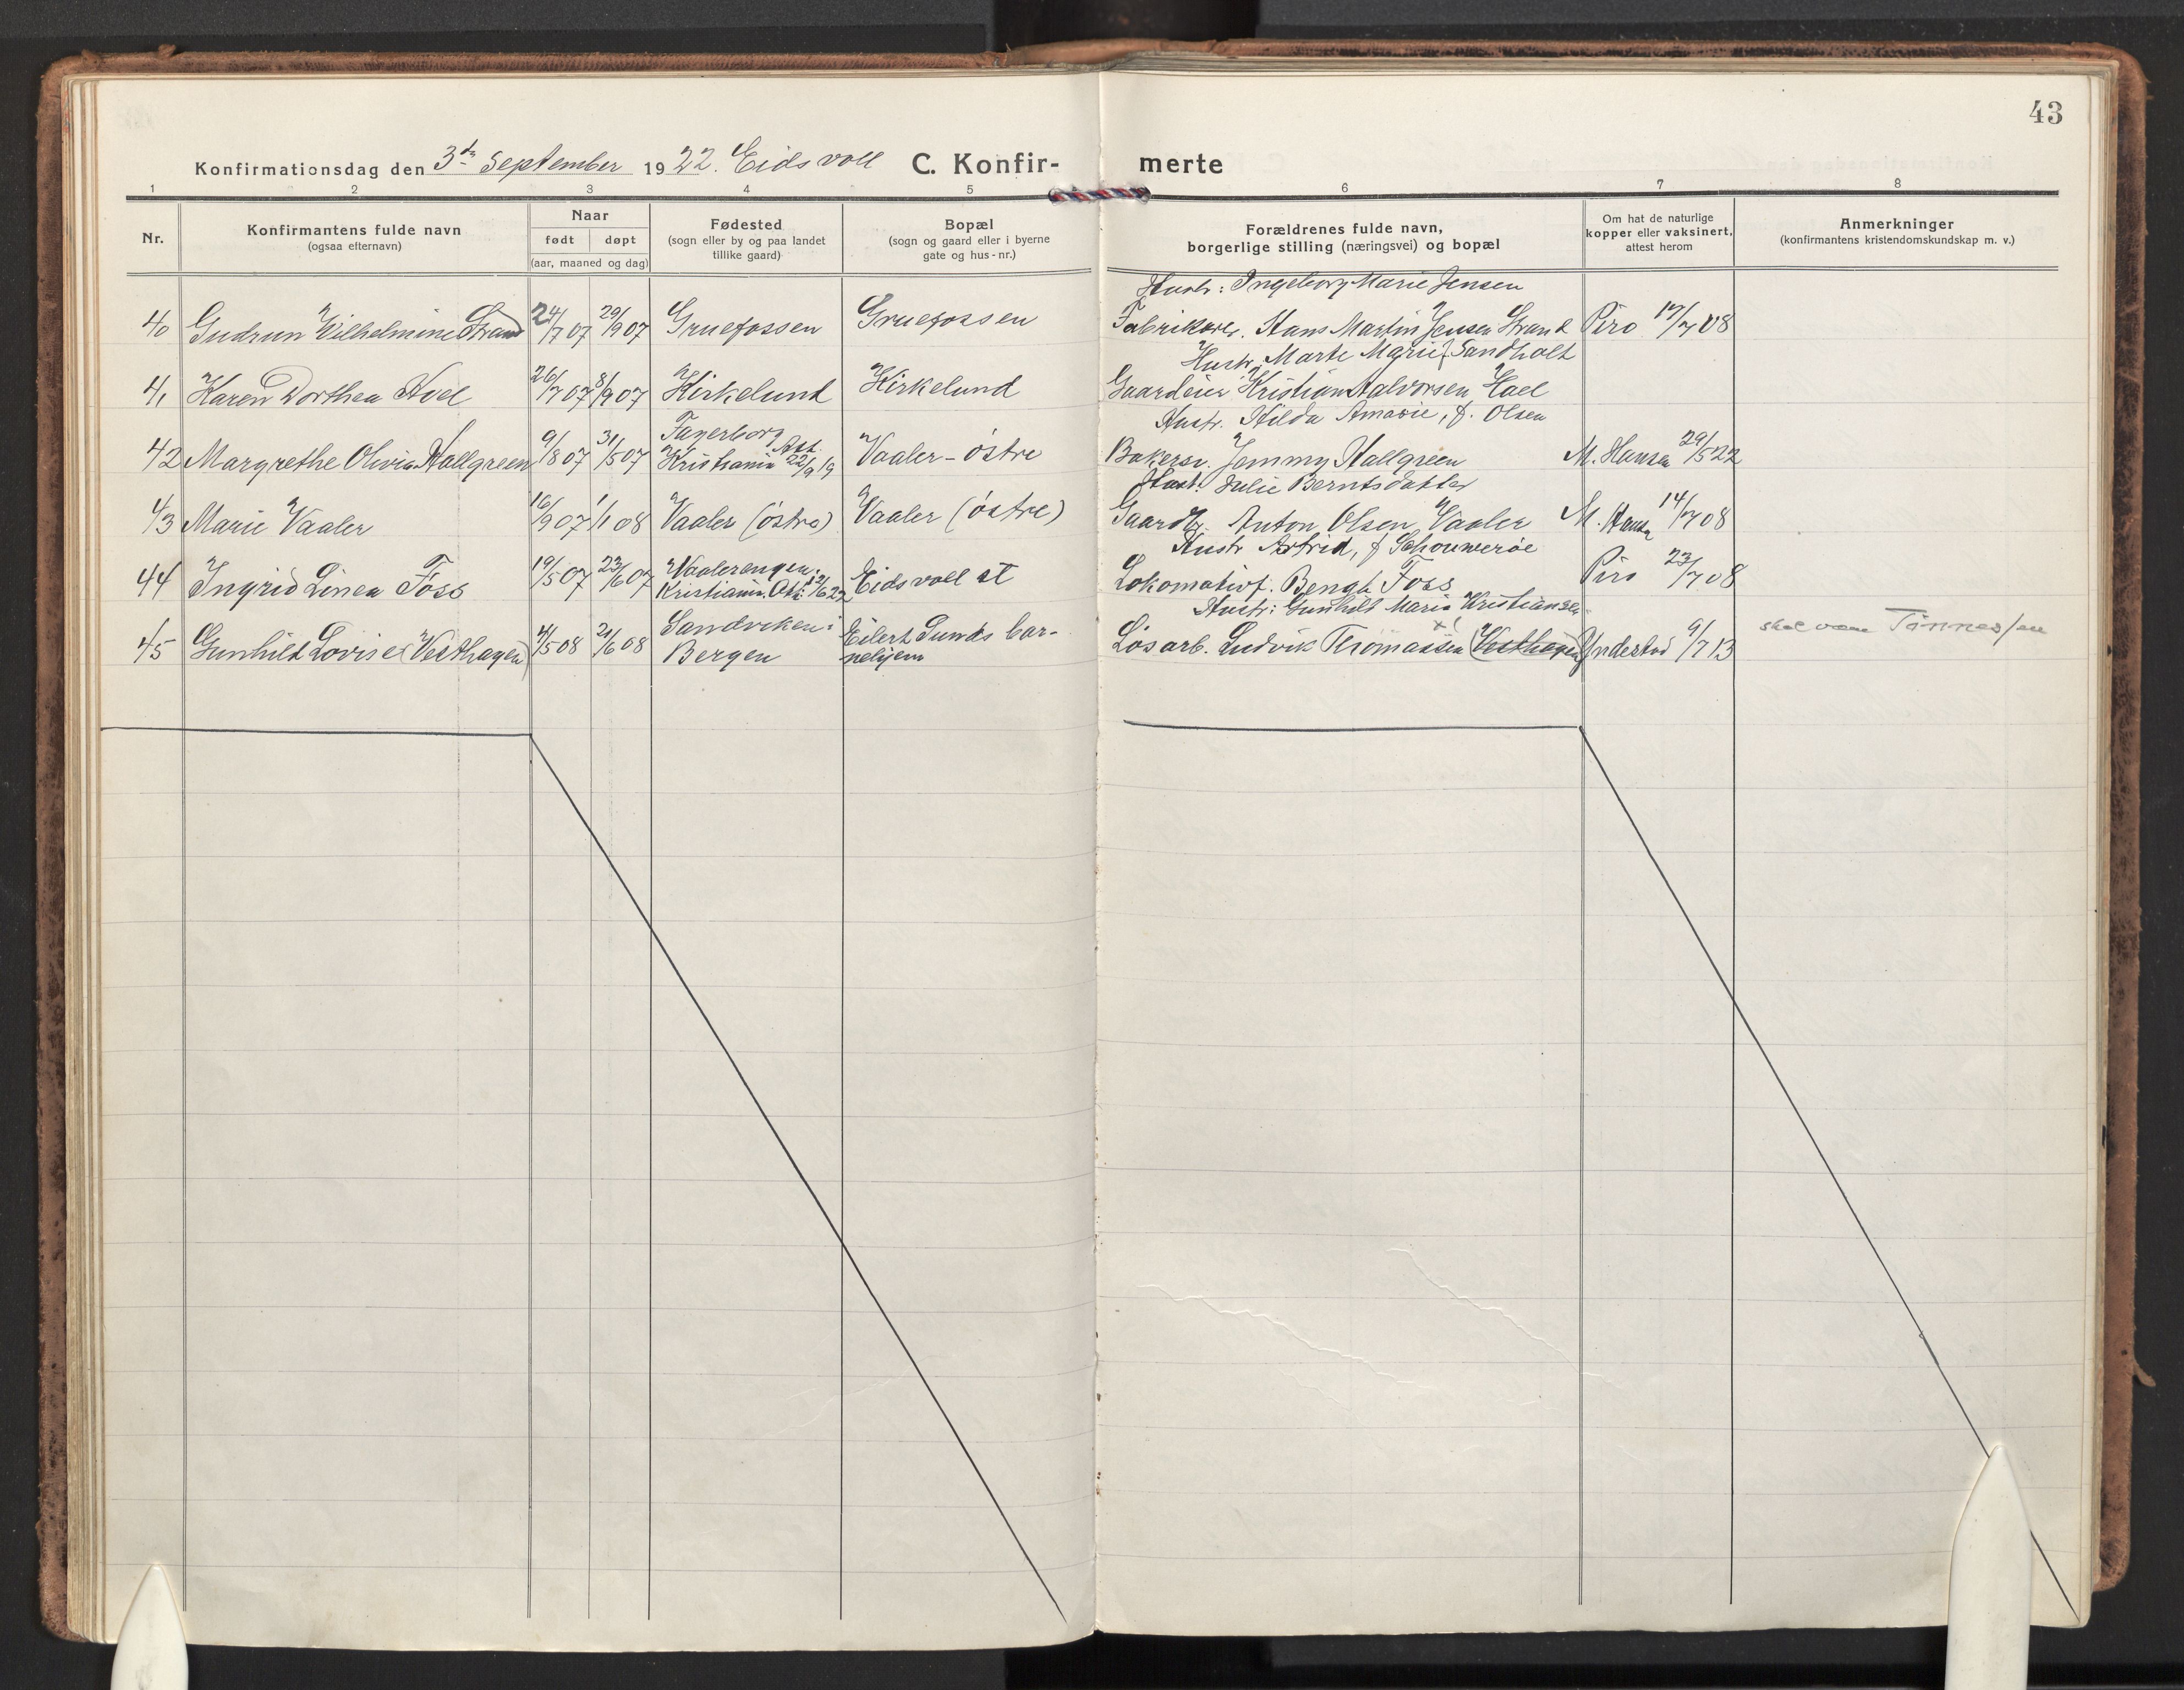 43
Konfirmationsdag den 3de September 1922. Eidsvoll C. Konfir- merte
1 2 3 4 5 6 7 8
Nr.
Konfirmantens fulde navn
(ogsaa efternavn)
Naar
født døpt
(aar, maaned og dag)
Fødested
(sogn eller by og paa landet
tillike gaard)
Bopæl
(sogn og gaard eller i byerne
gate og hus-nr.)
Forældrenes fulde navn,
borgerlige stilling (næringsvei) og bopæl
Om hat de naturlige
kopper eller vaksinert,
attest herom
Anmerkninger
(konfirmantens kristendomskundskap m. v.)
Hustr: Ingeborg Marie Jensen
40 Gudrun Wilhelmine Strand 24/7 07 29/9 07 Gruefossen Gruefossen Fabrikarb. Hans Martin Jensen Strand Piro 17/7 08
Hustr. Marte Marie f. Sandholt
41 Karen Dorthea Hoel 26/7 07 8/9 07 Kirkelund Kirkelund Gaardeier Kristian Halvorsen Hoel
Hustr. Hilda Amasie, f. Olsen
42 Margrethe Olivia Hallgreen 9/8 07 31/5 07 Fagerborg
Kristiania Att. 22/9 19 Vaaler - østre Bakersv. Jemmy Hallgreen M. Hansen 29/5 22
Hustr. Julie Berntsdatter
43 Marie Vaaler 16/9 07 1/1 08 Vaaler (østre) Vaaler (østre) Gaardbr. Anton Olsen Vaaler M. Hansen 14/7 08
Hustr Astrid, f Schouwerøe
44 Ingrid Linea Foss 19/5 07 23/6 07 Vaalerengen,
Kristiania. Att: 12/6 22 Eidsvoll st Lokomotivf. Bengt Foss Piro 23/7 08
Hustr: Gunhild Maria Kristiansen
45 Gunhild Lovise (Vesthagen) 4/5 08 21/6 08 Sandviken i
Bergen Eilert Sunds bar-
nehjem Løsarb. Ludvik Thomassen (Vesthagen) 9/7 13 skal være Tønnessen